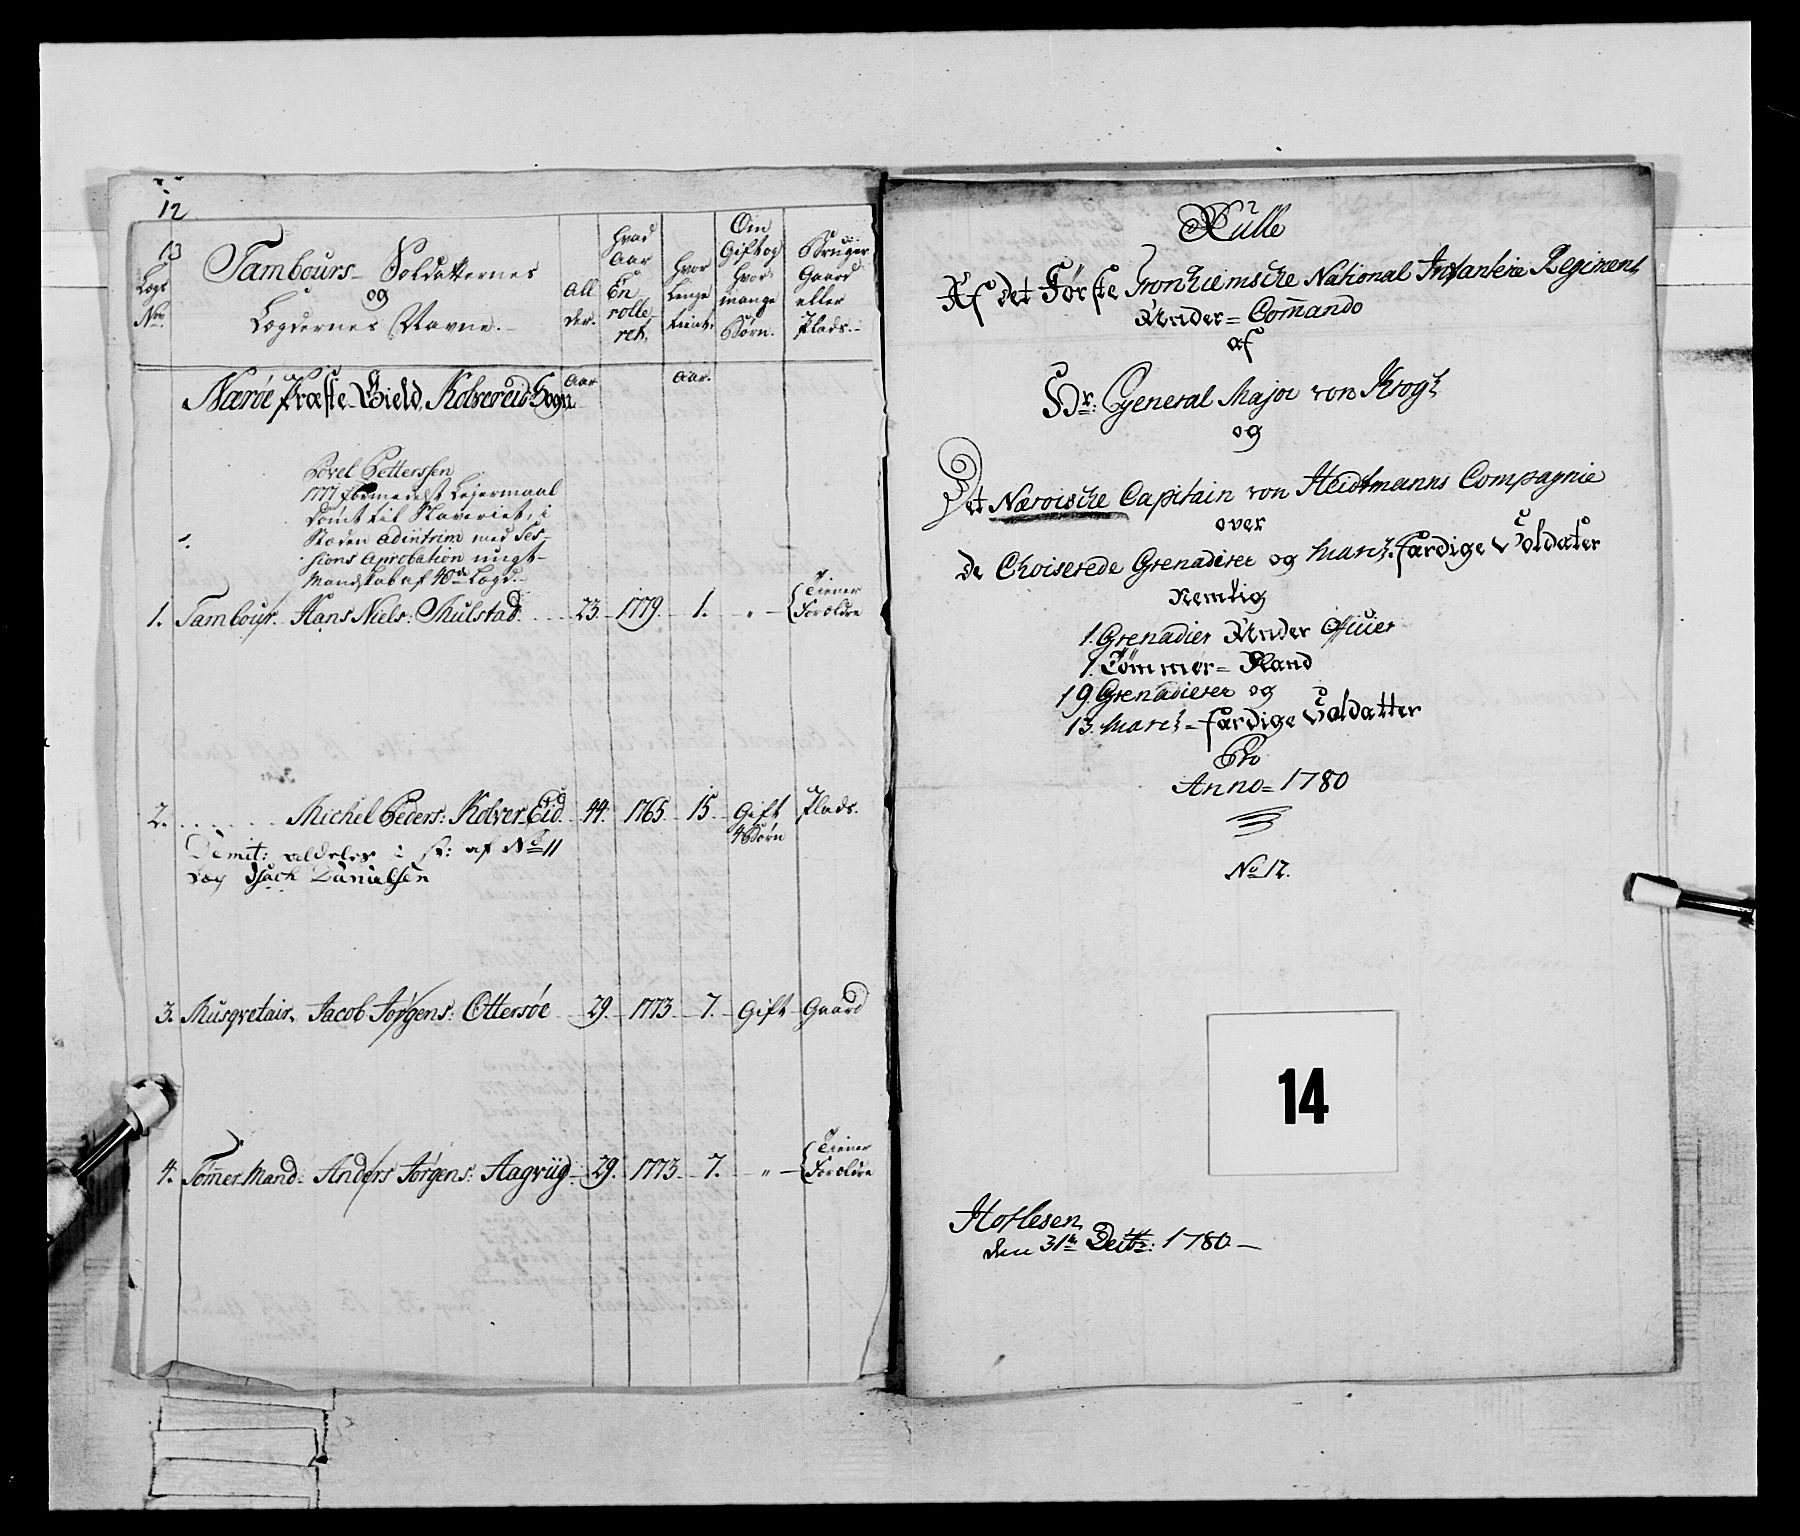 12
13
Lægs
No
Tambours Soldatternes
og
Lægdernes Navne.
All
der.
Hvad
Aar
En
rolle
ret.
Hvor
Lenge
tient.
Om
Gift og
Hvor
mange
Børn.
Bruger
Gaard
eller
Plads.
Nærøe Præste-Gield Kolvereid Sogn
Aar
Aar.
Povel Petterssen
1777 formedelst Lejermaal
Dømt til Slaveriet, i
Stæden adintrim med Ses-
sions Aprobation ungt
Mandskab af 40de Lægd.
1. Tambour Hans Niels: Thulstad. 23. 1779. 1. " Tiener
Forældre
2. Michel Peders: Kolver Eid 44. 1765. 15. Gift Plads.
4 Børn
Demit: aldeles i st: af No 11
Læg Isach Danielsen
3. Musqvetair. Jacob Jørgens: Ottersøe 29. 1773. 7. Gift Gaard
4. Tømer Mand. Anders Jørgens: Aagviig 29. 1773. 7. " Tiener
Forældre
Rulle
Af det Førſte Tronhiemsche National Infanterie Regiment
Under= Commando
af
Hr: General Major von Krogh
og
Det Næroische Capitain von Heidtmanns Compagnie
over
De Choiserede Grenaderer og March færdige Soldater
Nemlig
1. Grenadier Under Officier
1. Tömmer= Mand
19. Grenadierer og
13. March= færdige Soldatter
Pro
Anno= 1780
No 12.
14
Hoflesen
den 31te Decbr: 1780.